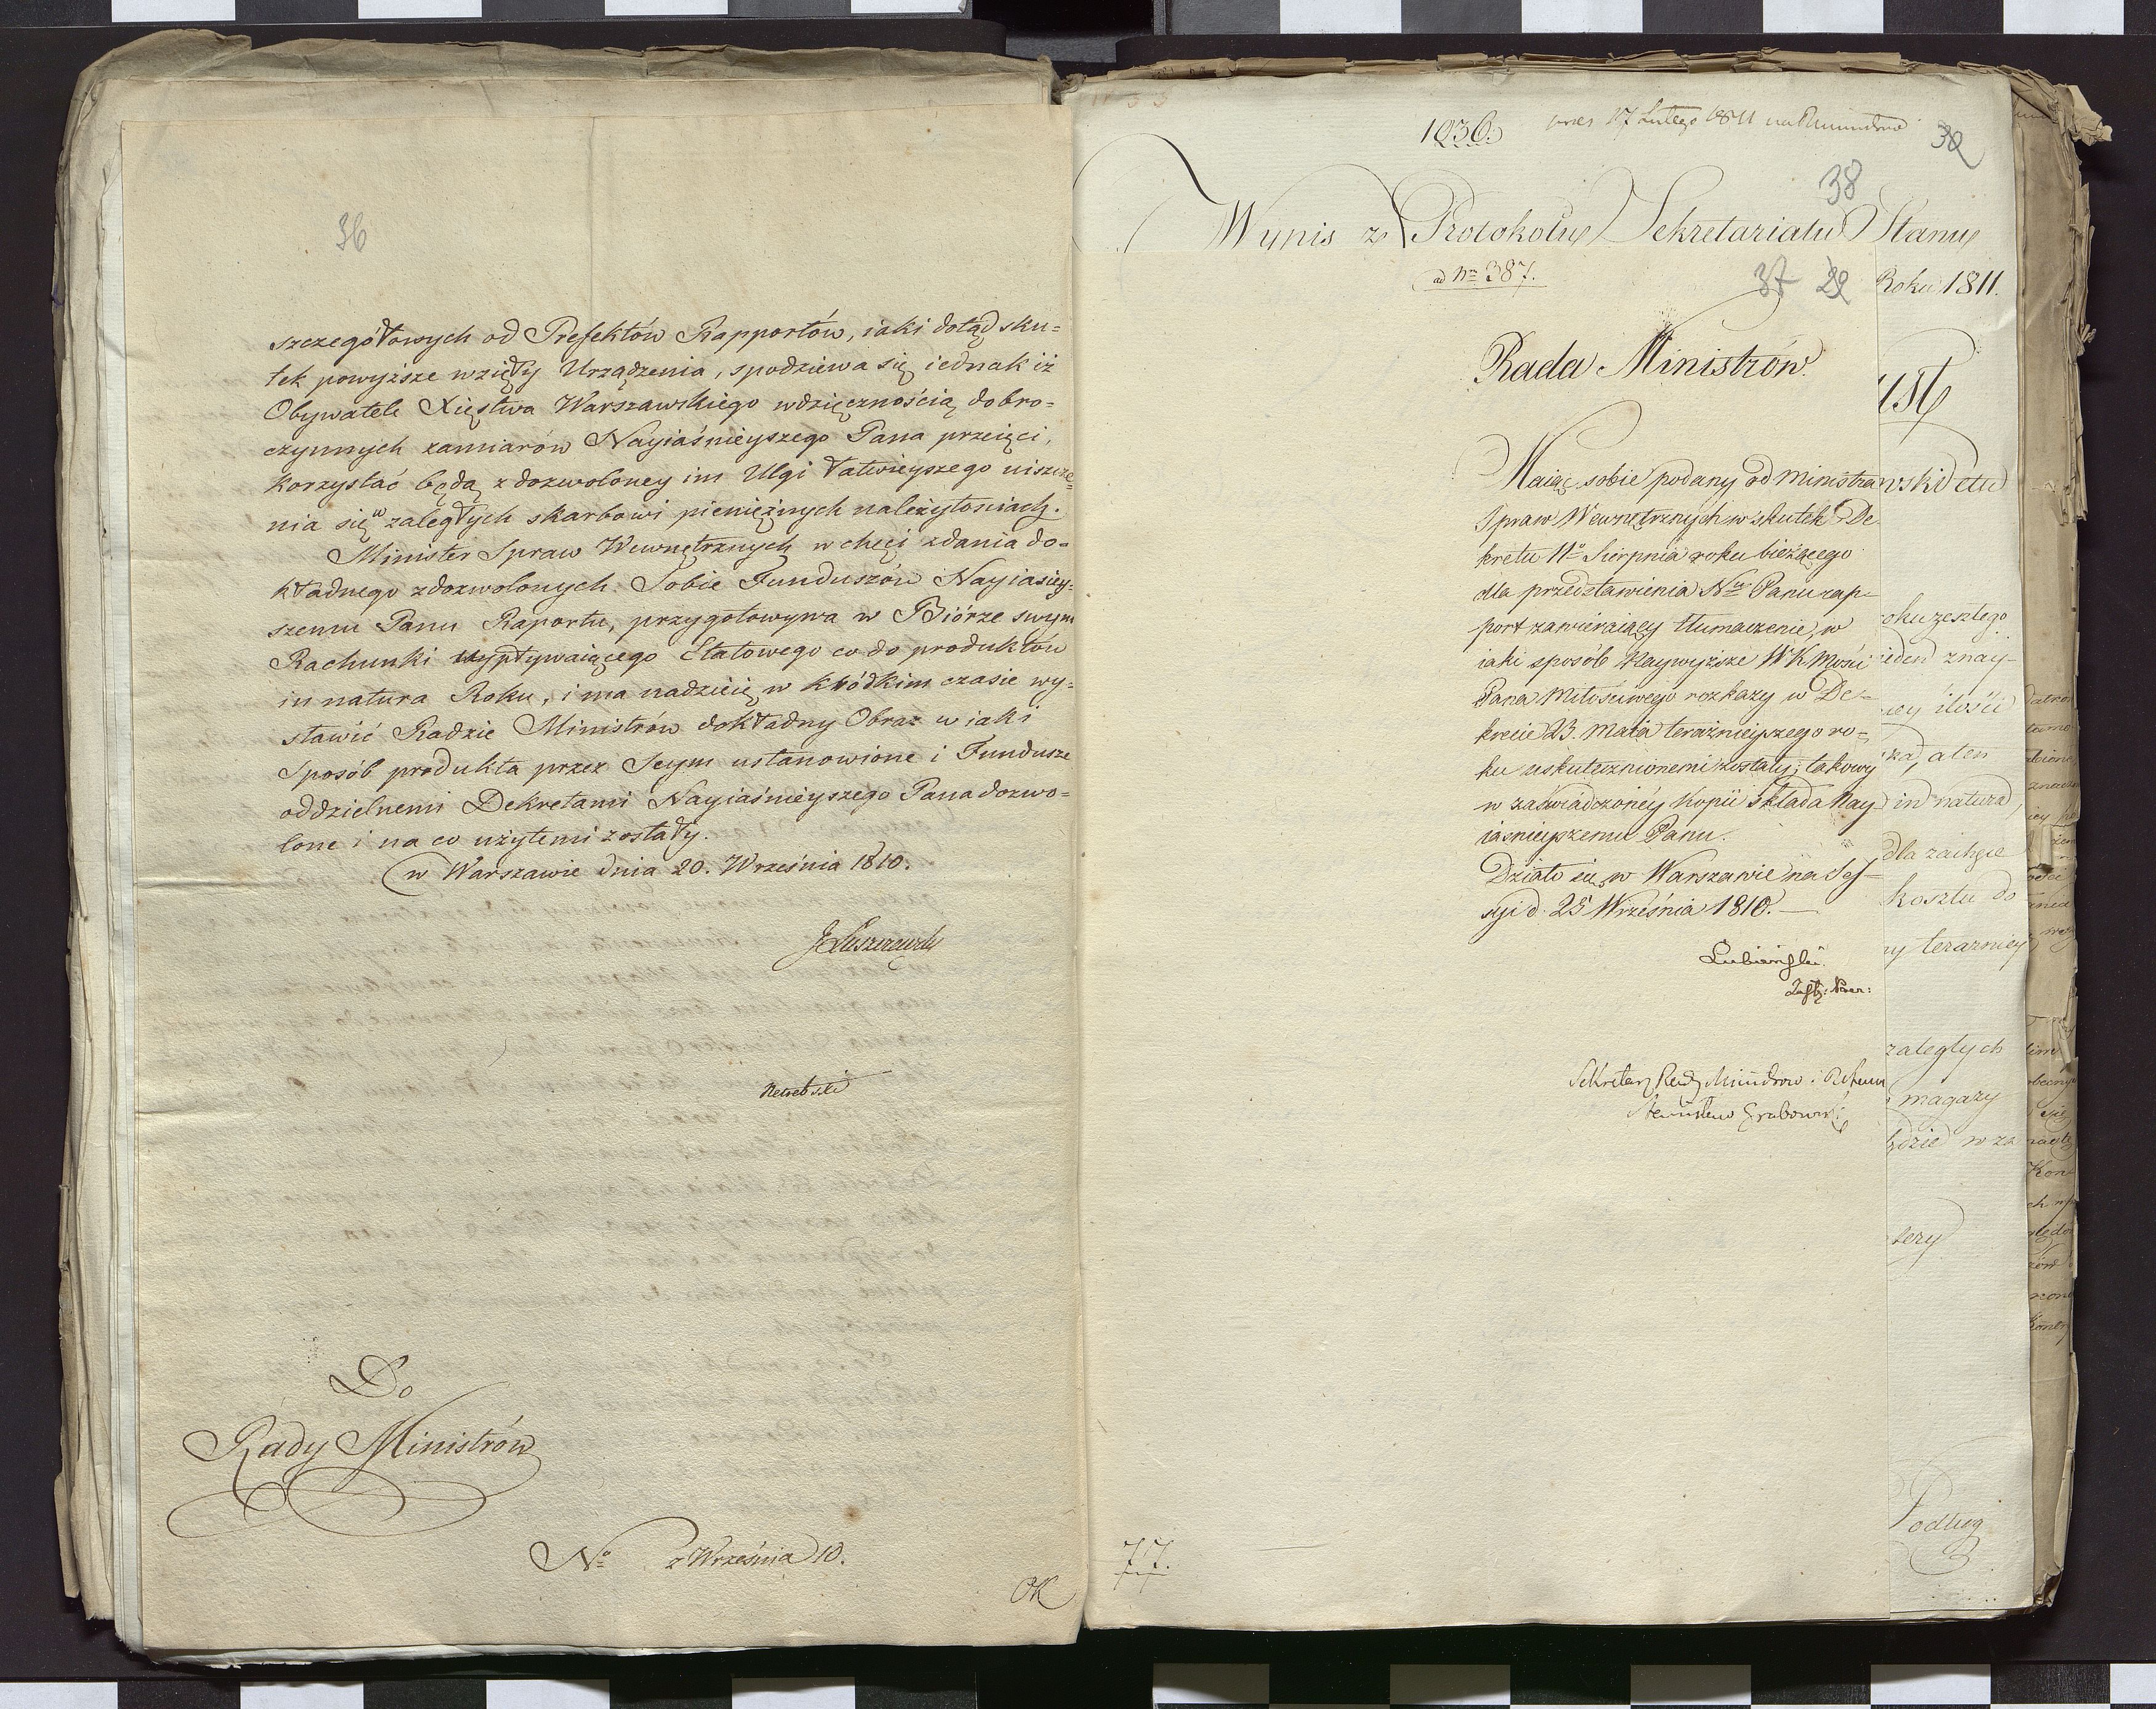 36
szczegółowych od Prefektów Rapportów, iaki dotąd sku=
tek powyższe wzięły Urządzenia, spodziewa się iednak iż
Obywatele Xięstwa Warszawskiego wdzięcznością dobro=
czynnych zamiarów Nayiaśnieyszego Pana przeięci,
korzystać będą z dozwoloney im Ulgi łatwieyszego uiszcze=
nia się w zaległych skarbowi pieniężnych należytościach.
Minister Spraw Wewnętrznych w chęci zdania do=
kładnego z dozwolonych Sobie Funduszów Nayiaśniey=
szemu Panu Raportu, przygotowywa w Biórze swym
Rachunki wypływaiącego Etatowego co do produktów
in natura Roku, i ma nadzieię w krótkim czasie wy=
stawić Radzie Ministrów dokładny Obraz w iaki
Sposób produkta przez Seym ustanowione i Fundusze
oddzielnemi Dekretami Nayiaśnieyszego Pana dozwo=
lone i na co użytemi zostały.
w Warszawie dnia 20. Września 1810.
JŁuszczewski
Do
Rady Ministrów
No z Września 10.
OK
1036.
17 Lutego 1811
32
38
Wypis z Protokołu Sekretariatu Stanu
ad Nro 387.
37 22
Roku 1811.
Rada Ministrów
Maiąc sobie podany od Ministra
Spraw Wewnętrznych w skutek De
kretu 11o Sierpnia roku bieżącego
dla przedstawienia Nmu Panu rap=
port zawieraiący tłumaczenie, w
iaki sposób Naywyższe W K Mości
Pana Miłościwego rozkazy w De=
krecie 23. Maia teraźnieyszego ro=
ku uskutecznionemi zostały; takowy
w zaświadczoney Kopii składa Nay
iaśnieyszemu Panu.
Działo się w Warszawie na Ses=
syi d. 25 Września 1810.
Łubieński
Zastę: Prez:
Sekretarz Rady Ministrow i Referen
Stanisław Grabowski
wski etc
roku zeszłego
ieden znay-
ney ilości
in natura,
kosztu do
ny teraźniey
zaległych
magazy
będzie w za
Podług
77.